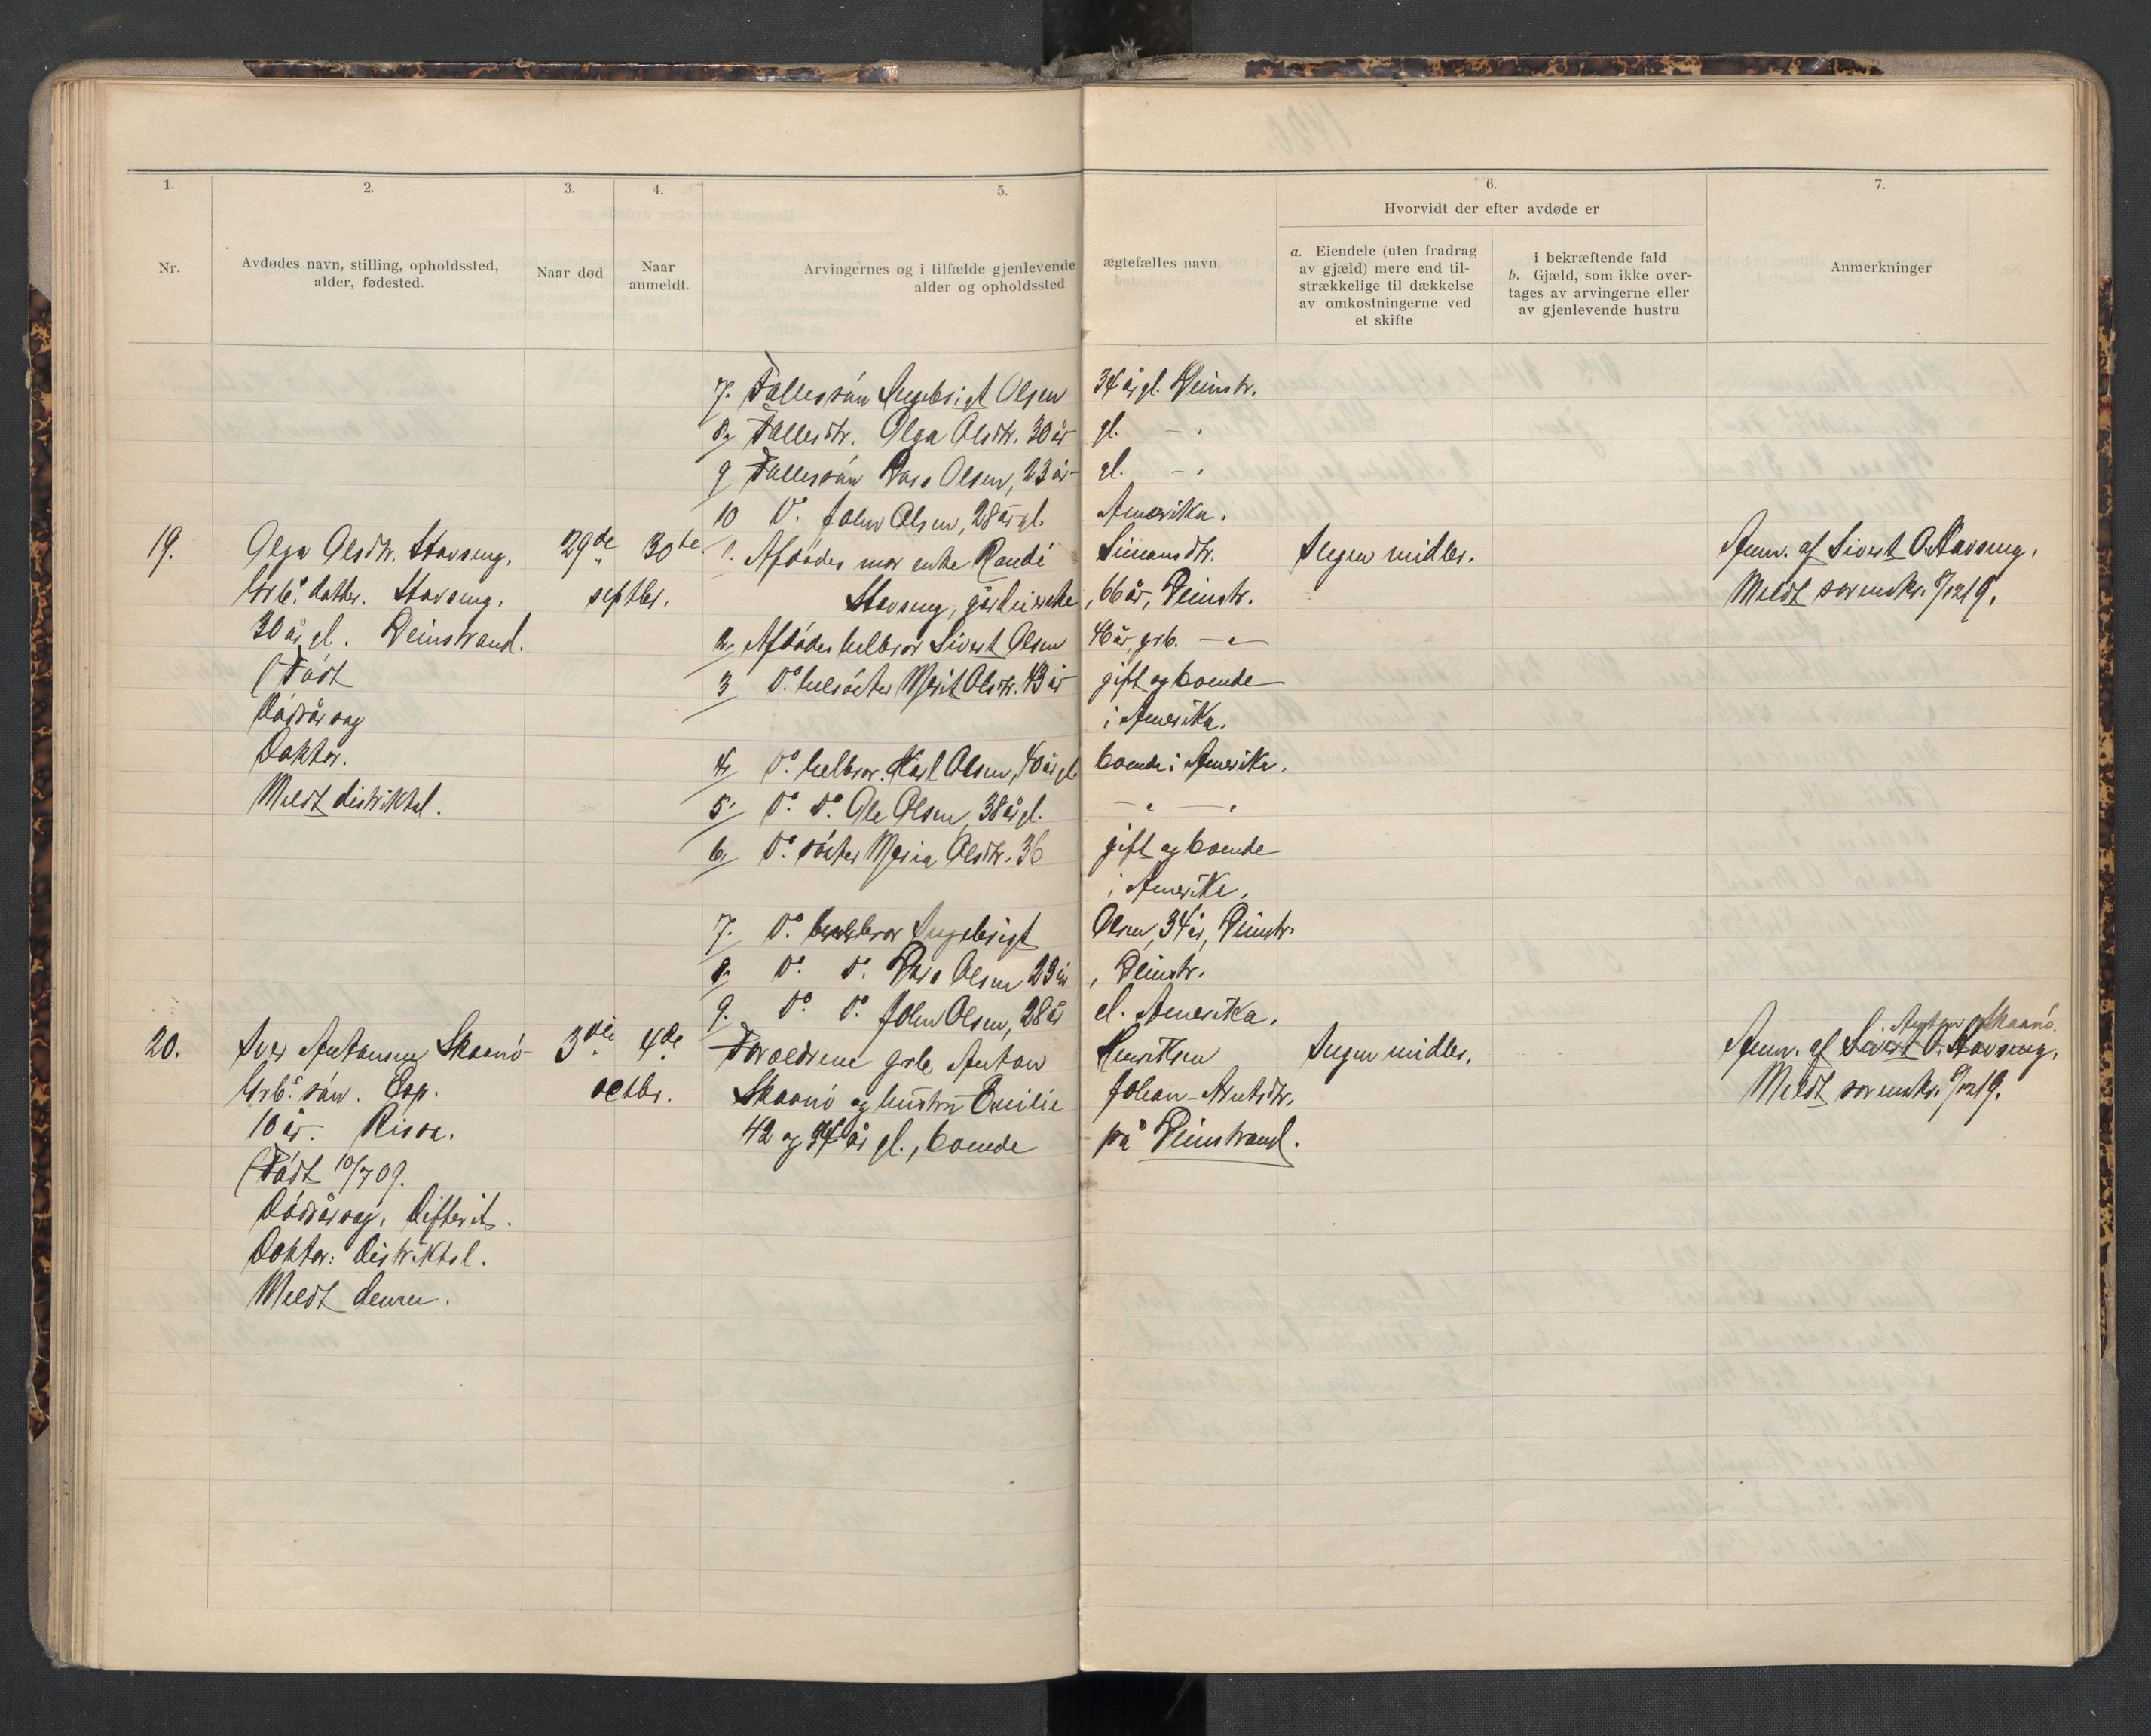 1. 2. 3. 4. 5. 6. 7.
Hvorvidt der efter avdøde er
Nr.
Avdødes navn, stilling, opholdssted,
alder, fødested.
Naar død
Naar
anmeldt.
Arvingernes og i tilfælde gjenlevende ægtefælles navn.
alder og opholdssted
a. Eiendele (uten fradrag
av gjæld) mere end til-
strækkelige til dækkelse
av omkostningerne ved
et skifte
i bekræftende fald
b. Gjæld, som ikke over-
tages av arvingerne eller
av gjenlevende hustru
Anmerkninger
7. Fællessøn Ingebrigt Olsen 34 år gl. Reinstr.
8. Fællesdtr. Olga Olsdtr. 30 år gl. — "
9 Fællessøn Olsen, 23 år gl. — "
10 Do. John Olsen, 28 år gl. Amerika.
19.
Olga Olsdtr. Stavseng.
Grbs. datter. Stavseng.
30 år gl. Reinstrand.
(Født
Dødsårsag
Doktor.
Meldt distriktsl.
29de 30te
septbr.
1. Afdødes mor enke Randi Simonsdtr.
Stavseng, 66 år, Reinstr.
2. Afdødes helbror Sivert Olsen 46 år, grb. — " —
3 Do. helsøster Marit Olsdtr. 43 år gift og boende
i Amerika.
4. Do. helbror. Karl Olsen, 40 år gl. boende i Amerika.
5. Do. Do. Ole Olsen, 38 år gl. — " — "
6. Do. søster Maria Olsdtr. 36 gift og boende
i Amerika.
7. Do. helbror Ingebrigt Olsen, 34 år, Reinstr.
8. Do. Do. Olsen 23 år, Reinstr.
9. Do. Do. John Olsen, 28 år gl. Amerika.
Ingen midler.
Anm. af Sivert O. Stavseng.
Meldt sorenskr. 8/12 19.
20.
Iver Antonsen Skaanø
Grbs. søn. Esp.
10 år. Rissa.
(Født 10/7 09.
Dødsårsag: Difterit.
Doktor: Distriktsl.
Meldt denne.
3die 4de
octbr.
Forældrene grb. Anton Henriksen
Skaanø og hustru Emilie Johan-Arntsdtr.
42 og 34 år gl., boende på Reinstrand.
Ingen midler.
Anton Skaanø.
Anm. af Sivert O. Stavseng.
Meldt sorenskr. 8/12 19.